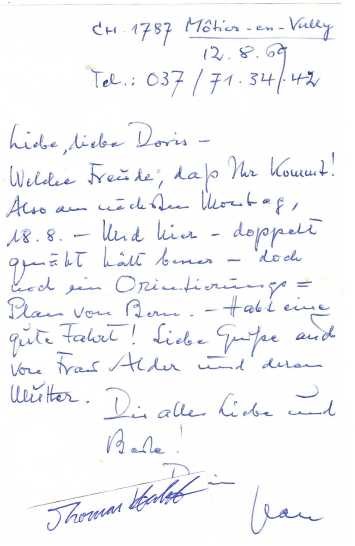 CH 1787 Môtier-en-Vully
12.8.69
Tel.: 037/71.34.42
Liebe, liebe Doris –
Welche Freude, daß Ihr kommt!
Also am nächsten Montag,
18.8. – Und hier – doppelt
genäht hält besser – doch
noch ein Orientierungs=
Plan von Bern. – Habt eine
gute Fahrt! Liebe Grüße auch
von Frau Alder und deren
Mutter.
Dir alles Liebe und
Beste!
Dein
Thomas